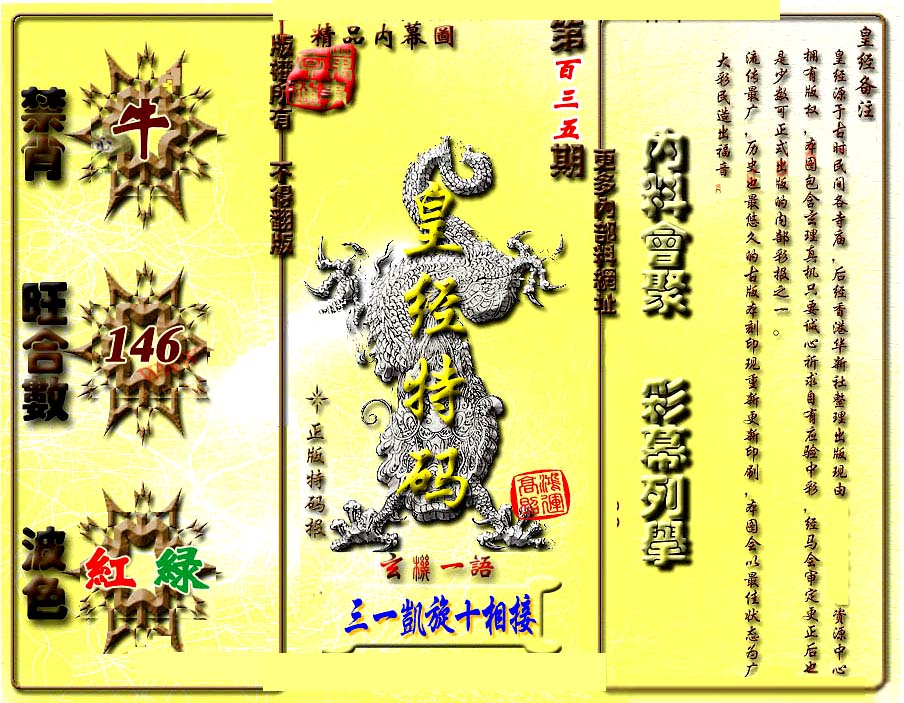 皇经备注
皇经源于古时民间各寺庙,后经香港华新社整理出版现由 资源中心
拥有版权,本图包含玄理真机只要诚心祈求自有应验中彩,经马会审定更正后也
是少数可正式出版的内部彩报之一。
流传最广,历史也最悠久的古版本刻印现重新更新印刷,本图会以最佳状态为广
大彩民造出福音
內料會聚 彩幕列舉
更多內部料網址
第百三五期
精品内幕圖
皇经特码
正版特码报
鴻運
高照
玄機一語
三一凱旋十相接
版權所有 不得翻版
禁肖
牛
旺合數
146
波色
紅 綠